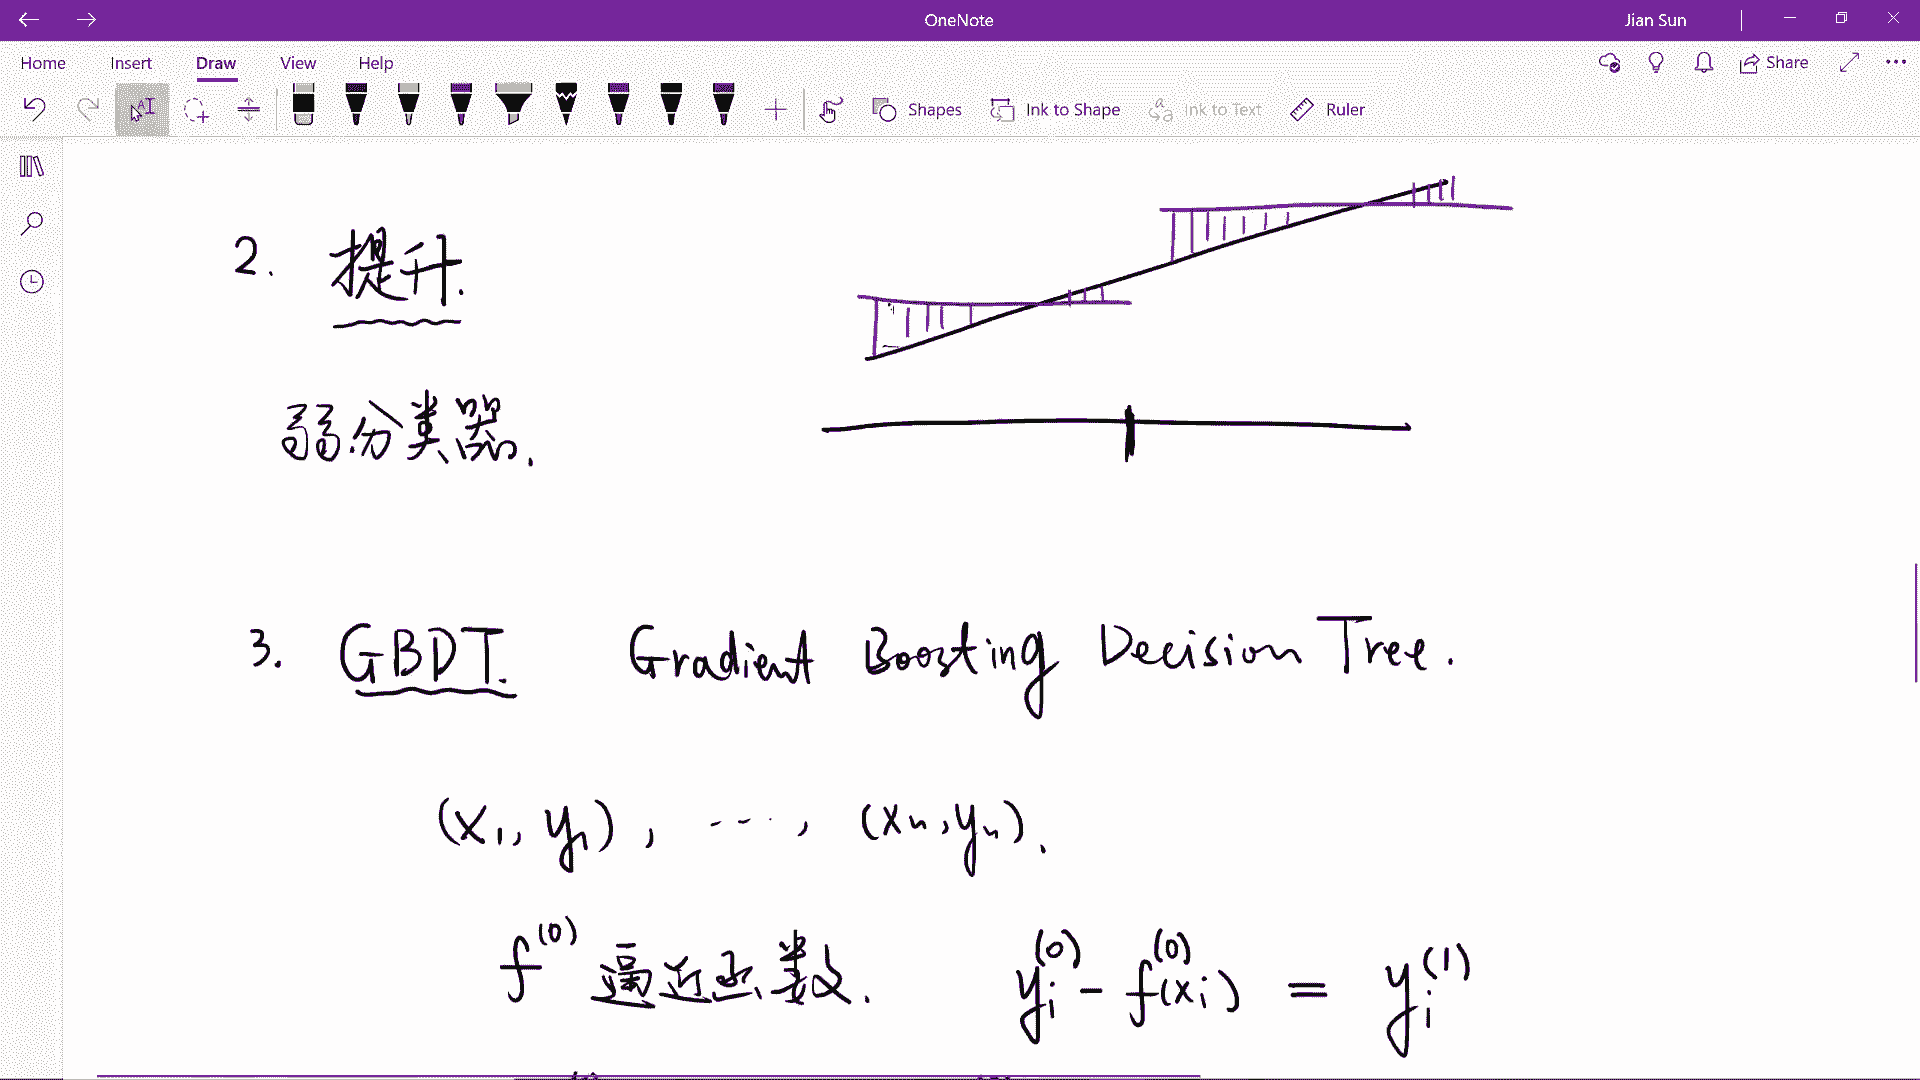 OneNote
Jian Sun
Home Insert Draw View Help
Share
Shapes Ink to Shape Ink to Text Ruler
2. 提升.
弱分类器.
3. GBDT. Gradient Boosting Decision Tree.
(x₁, y₁), ..., (xₙ, yₙ).
f⁽⁰⁾ 逼近函数. yᵢ⁽⁰⁾ - f⁽⁰⁾(xᵢ) = yᵢ⁽¹⁾